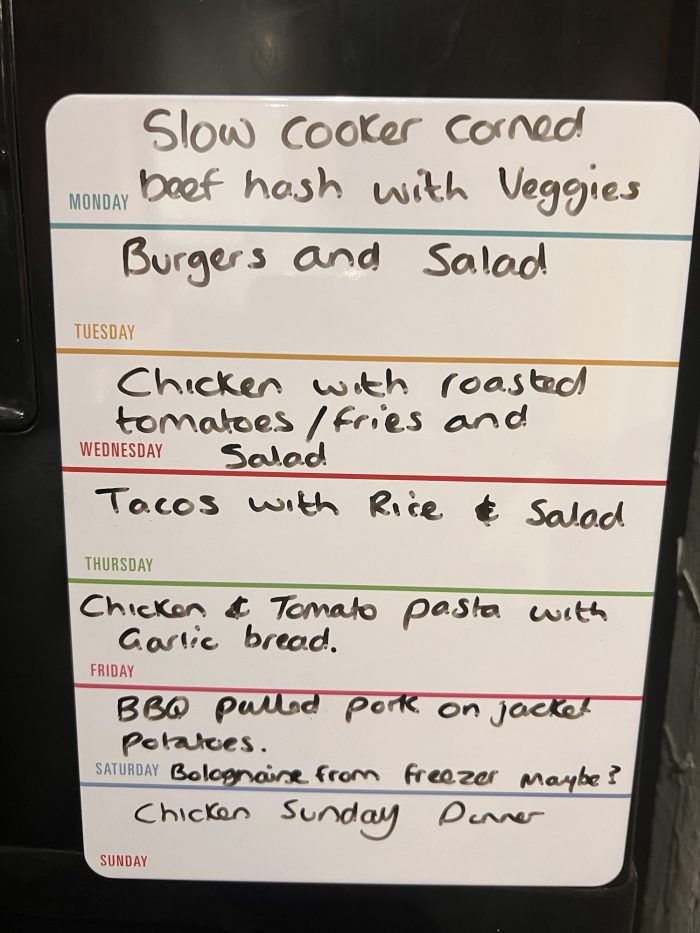 Slow cooker corned
beef hash with Veggies
MONDAY
Burgers and Salad
TUESDAY
Chicken with roasted
tomatoes / fries and
Salad
WEDNESDAY
Tacos with Rice & Salad
THURSDAY
Chicken & Tomato pasta with
Garlic bread.
FRIDAY
BBQ pulled pork on jacket
potatoes.
SATURDAY Bolognaise from freezer maybe?
Chicken Sunday Dinner
SUNDAY